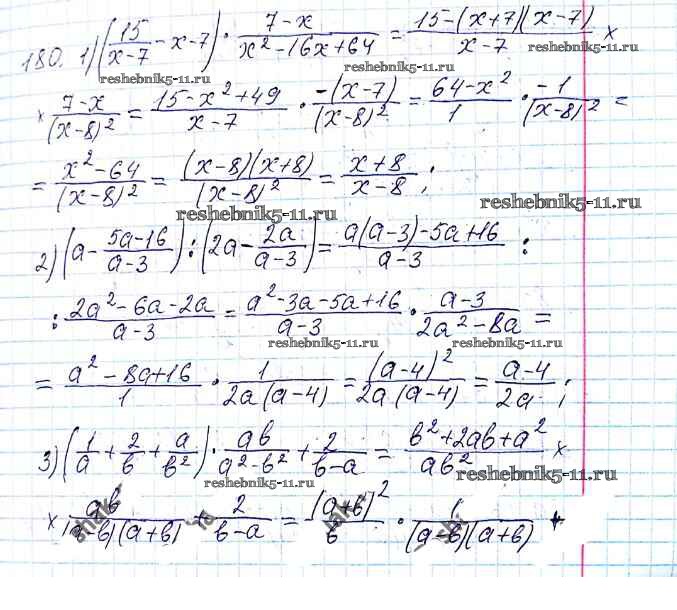 180. 1) (15/(x-7) - x - 7) · (7-x)/(x²-16x+64) = (15-(x+7)(x-7))/(x-7) ×
reshebnik5-11.ru reshebnik5-11.ru reshebnik5-11.ru
× (7-x)/(x-8)² = (15-x²+49)/(x-7) · (-(x-7))/(x-8)² = (64-x²)/1 · (-1)/(x-8)² =
= (x²-64)/(x-8)² = ((x-8)(x+8))/(x-8)² = (x+8)/(x-8);
reshebnik5-11.ru reshebnik5-11.ru
2) (a - (5a-16)/(a-3)) : (2a - 2a/(a-3)) = (a(a-3)-5a+16)/(a-3) :
: (2a²-6a-2a)/(a-3) = (a²-3a-5a+16)/(a-3) · (a-3)/(2a²-8a) =
reshebnik5-11.ru reshebnik5-11.ru
= (a²-8a+16)/1 · 1/(2a(a-4)) = (a-4)²/(2a(a-4)) = (a-4)/(2a);
3) (1/a + 2/b + a/b²) · ab/(a²-b²) + 2/(b-a) = (b²+2ab+a²)/(ab²) ×
reshebnik5-11.ru
× ab/((a-b)(a+b)) + 2/(b-a) = (a+b)²/b · 1/((a-b)(a+b)) +